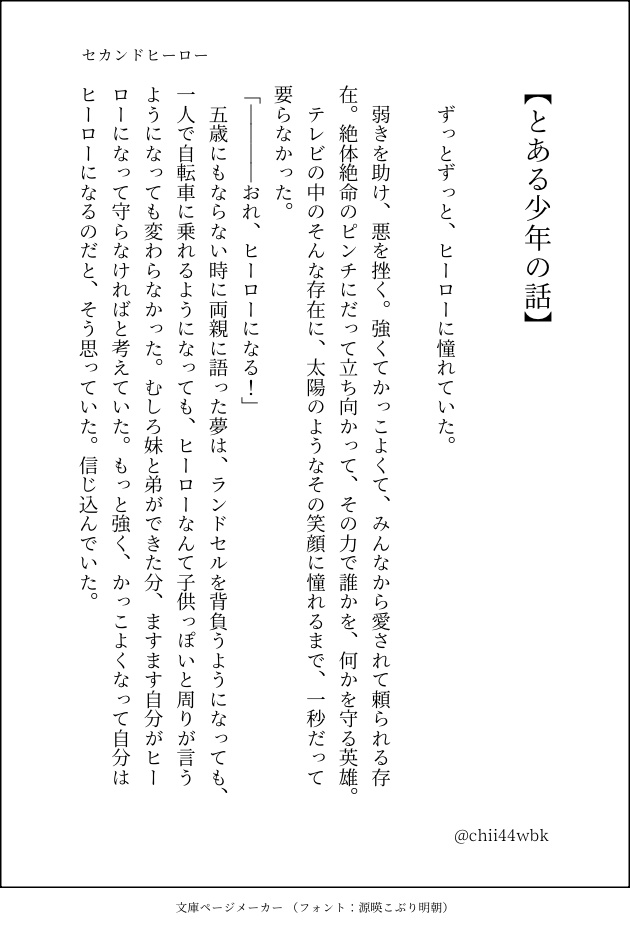 セカンドヒーロー
【とある少年の話】
ずっとずっと、ヒーローに憧れていた。
弱きを助け、悪を挫く。強くてかっこよくて、みんなから愛されて頼られる存
在。絶体絶命のピンチにだって立ち向かって、その力で誰かを、何かを守る英雄。
テレビの中のそんな存在に、太陽のようなその笑顔に憧れるまで、一秒だって
要らなかった。
「―――――おれ、ヒーローになる！」
五歳にもならない時に両親に語った夢は、ランドセルを背負うようになっても、
一人で自転車に乗れるようになっても、ヒーローなんて子供っぽいと周りが言う
ようになっても変わらなかった。むしろ妹と弟ができた分、ますます自分がヒー
ローになって守らなければと考えていた。もっと強く、かっこよくなって自分は
ヒーローになるのだと、そう思っていた。信じ込んでいた。
@chii44wbk
文庫ページメーカー（フォント：源暎こぶり明朝）